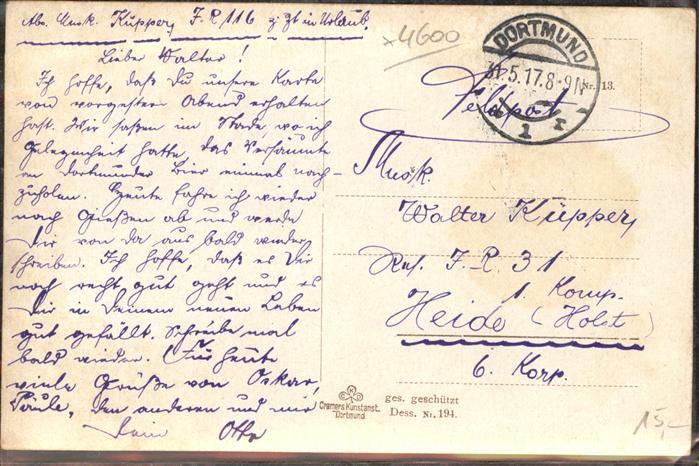 Abs. Musk. Küpper, I. R 116 z. Zt in Urlaub.
Lieber Walter!
Ich hoffe, daß Du unsere Karte
von vorgestern Abend erhalten
hast. Wir saßen im Stade, wo ich
Gelegenheit hatte, das Versäumte
an Dortmunder Bier einmal nach-
zuholen. Heute fahre ich wieder
nach Gießen ab und werde
Dir von da aus bald wieder
schreiben. Ich hoffe, daß es Dir
noch recht gut geht und es
Dir in Deinem neuen Leben
gut gefällt. Schreibe mal
bald wieder. Für heute
viele Grüße von Oskar,
Paule, den anderen und mir
Dein Otto
4600
DORTMUND
31.5.17.8-9N
1 r
Nr. 13.
Feldpost
Musk.
Walter Küpper,
Res. I. R. 31
1. Komp.
Heide (Holst)
6. Korp.
Cramers Kunstanst.
Dortmund
ges. geschützt
Dess. Nr. 194.
15,-